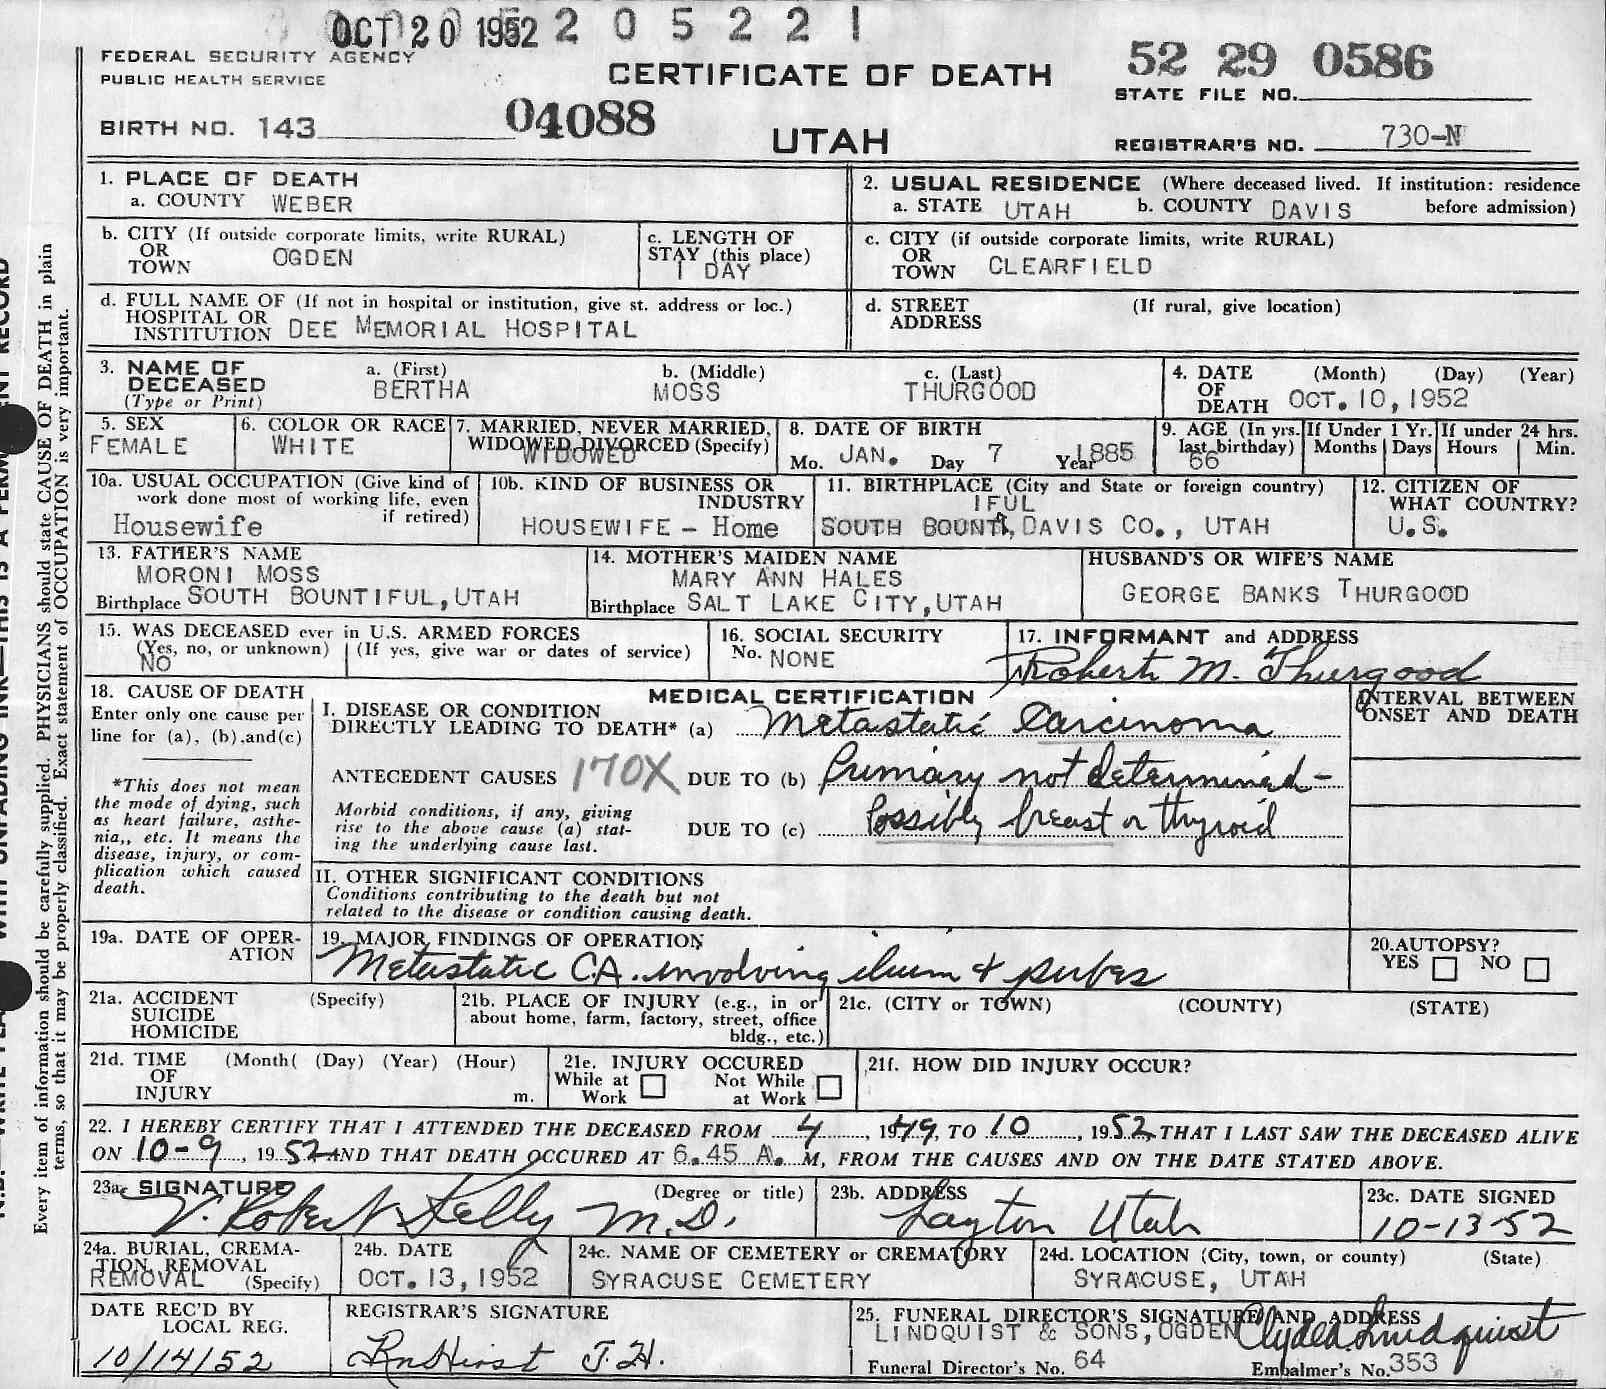 OCT 20 1952 2 0 5 2 2 1
FEDERAL SECURITY AGENCY
PUBLIC HEALTH SERVICE
CERTIFICATE OF DEATH
52 29 0586
STATE FILE NO.
BIRTH NO. 143
04088
UTAH
REGISTRAR'S NO. 730-N
1. PLACE OF DEATH
a. COUNTY WEBER
2. USUAL RESIDENCE (Where deceased lived. If institution: residence
a. STATE UTAH b. COUNTY DAVIS before admission)
b. CITY (If outside corporate limits, write RURAL)
OR
TOWN OGDEN
c. LENGTH OF
STAY (this place)
1 DAY
c. CITY (if outside corporate limits, write RURAL)
OR
TOWN CLEARFIELD
d. FULL NAME OF (If not in hospital or institution, give st. address or loc.)
HOSPITAL OR
INSTITUTION DEE MEMORIAL HOSPITAL
d. STREET (If rural, give location)
ADDRESS
3. NAME OF
DECEASED
(Type or Print)
a. (First) b. (Middle) c. (Last)
BERTHA MOSS THURGOOD
4. DATE (Month) (Day) (Year)
OF
DEATH OCT. 10, 1952
5. SEX
FEMALE
6. COLOR OR RACE
WHITE
7. MARRIED, NEVER MARRIED,
WIDOWED DIVORCED (Specify)
WIDOWED
8. DATE OF BIRTH
Mo. JAN. Day 7 Year 1885
9. AGE (In yrs.
last birthday)
66
If Under 1 Yr.
Months Days
If under 24 hrs.
Hours Min.
10a. USUAL OCCUPATION (Give kind of
work done most of working life, even
if retired)
Housewife
10b. KIND OF BUSINESS OR
INDUSTRY
HOUSEWIFE - Home
11. BIRTHPLACE (City and State or foreign country)
IFUL
SOUTH BOUNT, DAVIS CO., UTAH
12. CITIZEN OF
WHAT COUNTRY?
U.S.
13. FATHER'S NAME
MORONI MOSS
Birthplace SOUTH BOUNTIFUL, UTAH
14. MOTHER'S MAIDEN NAME
MARY ANN HALES
Birthplace SALT LAKE CITY, UTAH
HUSBAND'S OR WIFE'S NAME
GEORGE BANKS THURGOOD
15. WAS DECEASED ever in U.S. ARMED FORCES
(Yes, no, or unknown) (If yes, give war or dates of service)
NO
16. SOCIAL SECURITY
No. NONE
17. INFORMANT and ADDRESS
Robert M. Thurgood
18. CAUSE OF DEATH
Enter only one cause per
line for (a), (b), and (c)
*This does not mean
the mode of dying, such
as heart failure, asthe-
nia,, etc. It means the
disease, injury, or com-
plication which caused
death.
MEDICAL CERTIFICATION
I. DISEASE OR CONDITION
DIRECTLY LEADING TO DEATH* (a) Metastatic Carcinoma
ANTECEDENT CAUSES 170X DUE TO (b) Primary not determined-
Morbid conditions, if any, giving
rise to the above cause (a) stat-
ing the underlying cause last.
DUE TO (c) Possibly breast or thyroid
INTERVAL BETWEEN
ONSET AND DEATH
II. OTHER SIGNIFICANT CONDITIONS
Conditions contributing to the death but not
related to the disease or condition causing death.
19a. DATE OF OPER-
ATION
19. MAJOR FINDINGS OF OPERATION
Metastatic C.A. involving ilium & pubes
20. AUTOPSY?
YES NO
21a. ACCIDENT (Specify)
SUICIDE
HOMICIDE
21b. PLACE OF INJURY (e.g., in or
about home, farm, factory, street, office
bldg., etc.)
21c. (CITY or TOWN) (COUNTY) (STATE)
21d. TIME (Month( (Day) (Year) (Hour)
OF
INJURY m.
21e. INJURY OCCURED
While at Work Not While at Work
21f. HOW DID INJURY OCCUR?
22. I HEREBY CERTIFY THAT I ATTENDED THE DECEASED FROM 4, 1949, TO 10, 1952 THAT I LAST SAW THE DECEASED ALIVE
ON 10-9, 1952 AND THAT DEATH OCCURED AT 6.45 A. M, FROM THE CAUSES AND ON THE DATE STATED ABOVE.
23a. SIGNATURE (Degree or title)
V. Robert Kelly M.D.
23b. ADDRESS
Layton Utah
23c. DATE SIGNED
10-13-52
24a. BURIAL, CREMA-
TION, REMOVAL
REMOVAL (Specify)
24b. DATE
OCT. 13, 1952
24c. NAME OF CEMETERY or CREMATORY
SYRACUSE CEMETERY
24d. LOCATION (City, town, or county) (State)
SYRACUSE, UTAH
DATE REC'D BY
LOCAL REG.
10/14/52
REGISTRAR'S SIGNATURE
J. H.
25. FUNERAL DIRECTOR'S SIGNATURE AND ADDRESS
LINDQUIST & SONS, OGDEN Clyde Lindquist
Funeral Director's No. 64 Embalmer's No. 353
Every item of information should be carefully supplied. PHYSICIANS should state CAUSE OF DEATH in plain
terms, so that it may be properly classified. Exact statement of OCCUPATION is very important.